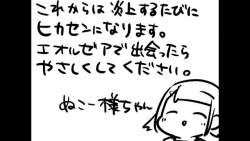 これからは炎上するたびに
ヒカセンになります。
エオルゼアで出会ったら
やさしくしてください。
ぬこー様ちゃん